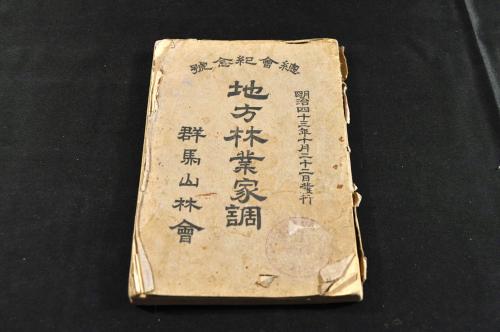 總會紀念號
明治四十三年十月二十二日發行
地方林業家調
群馬山林會